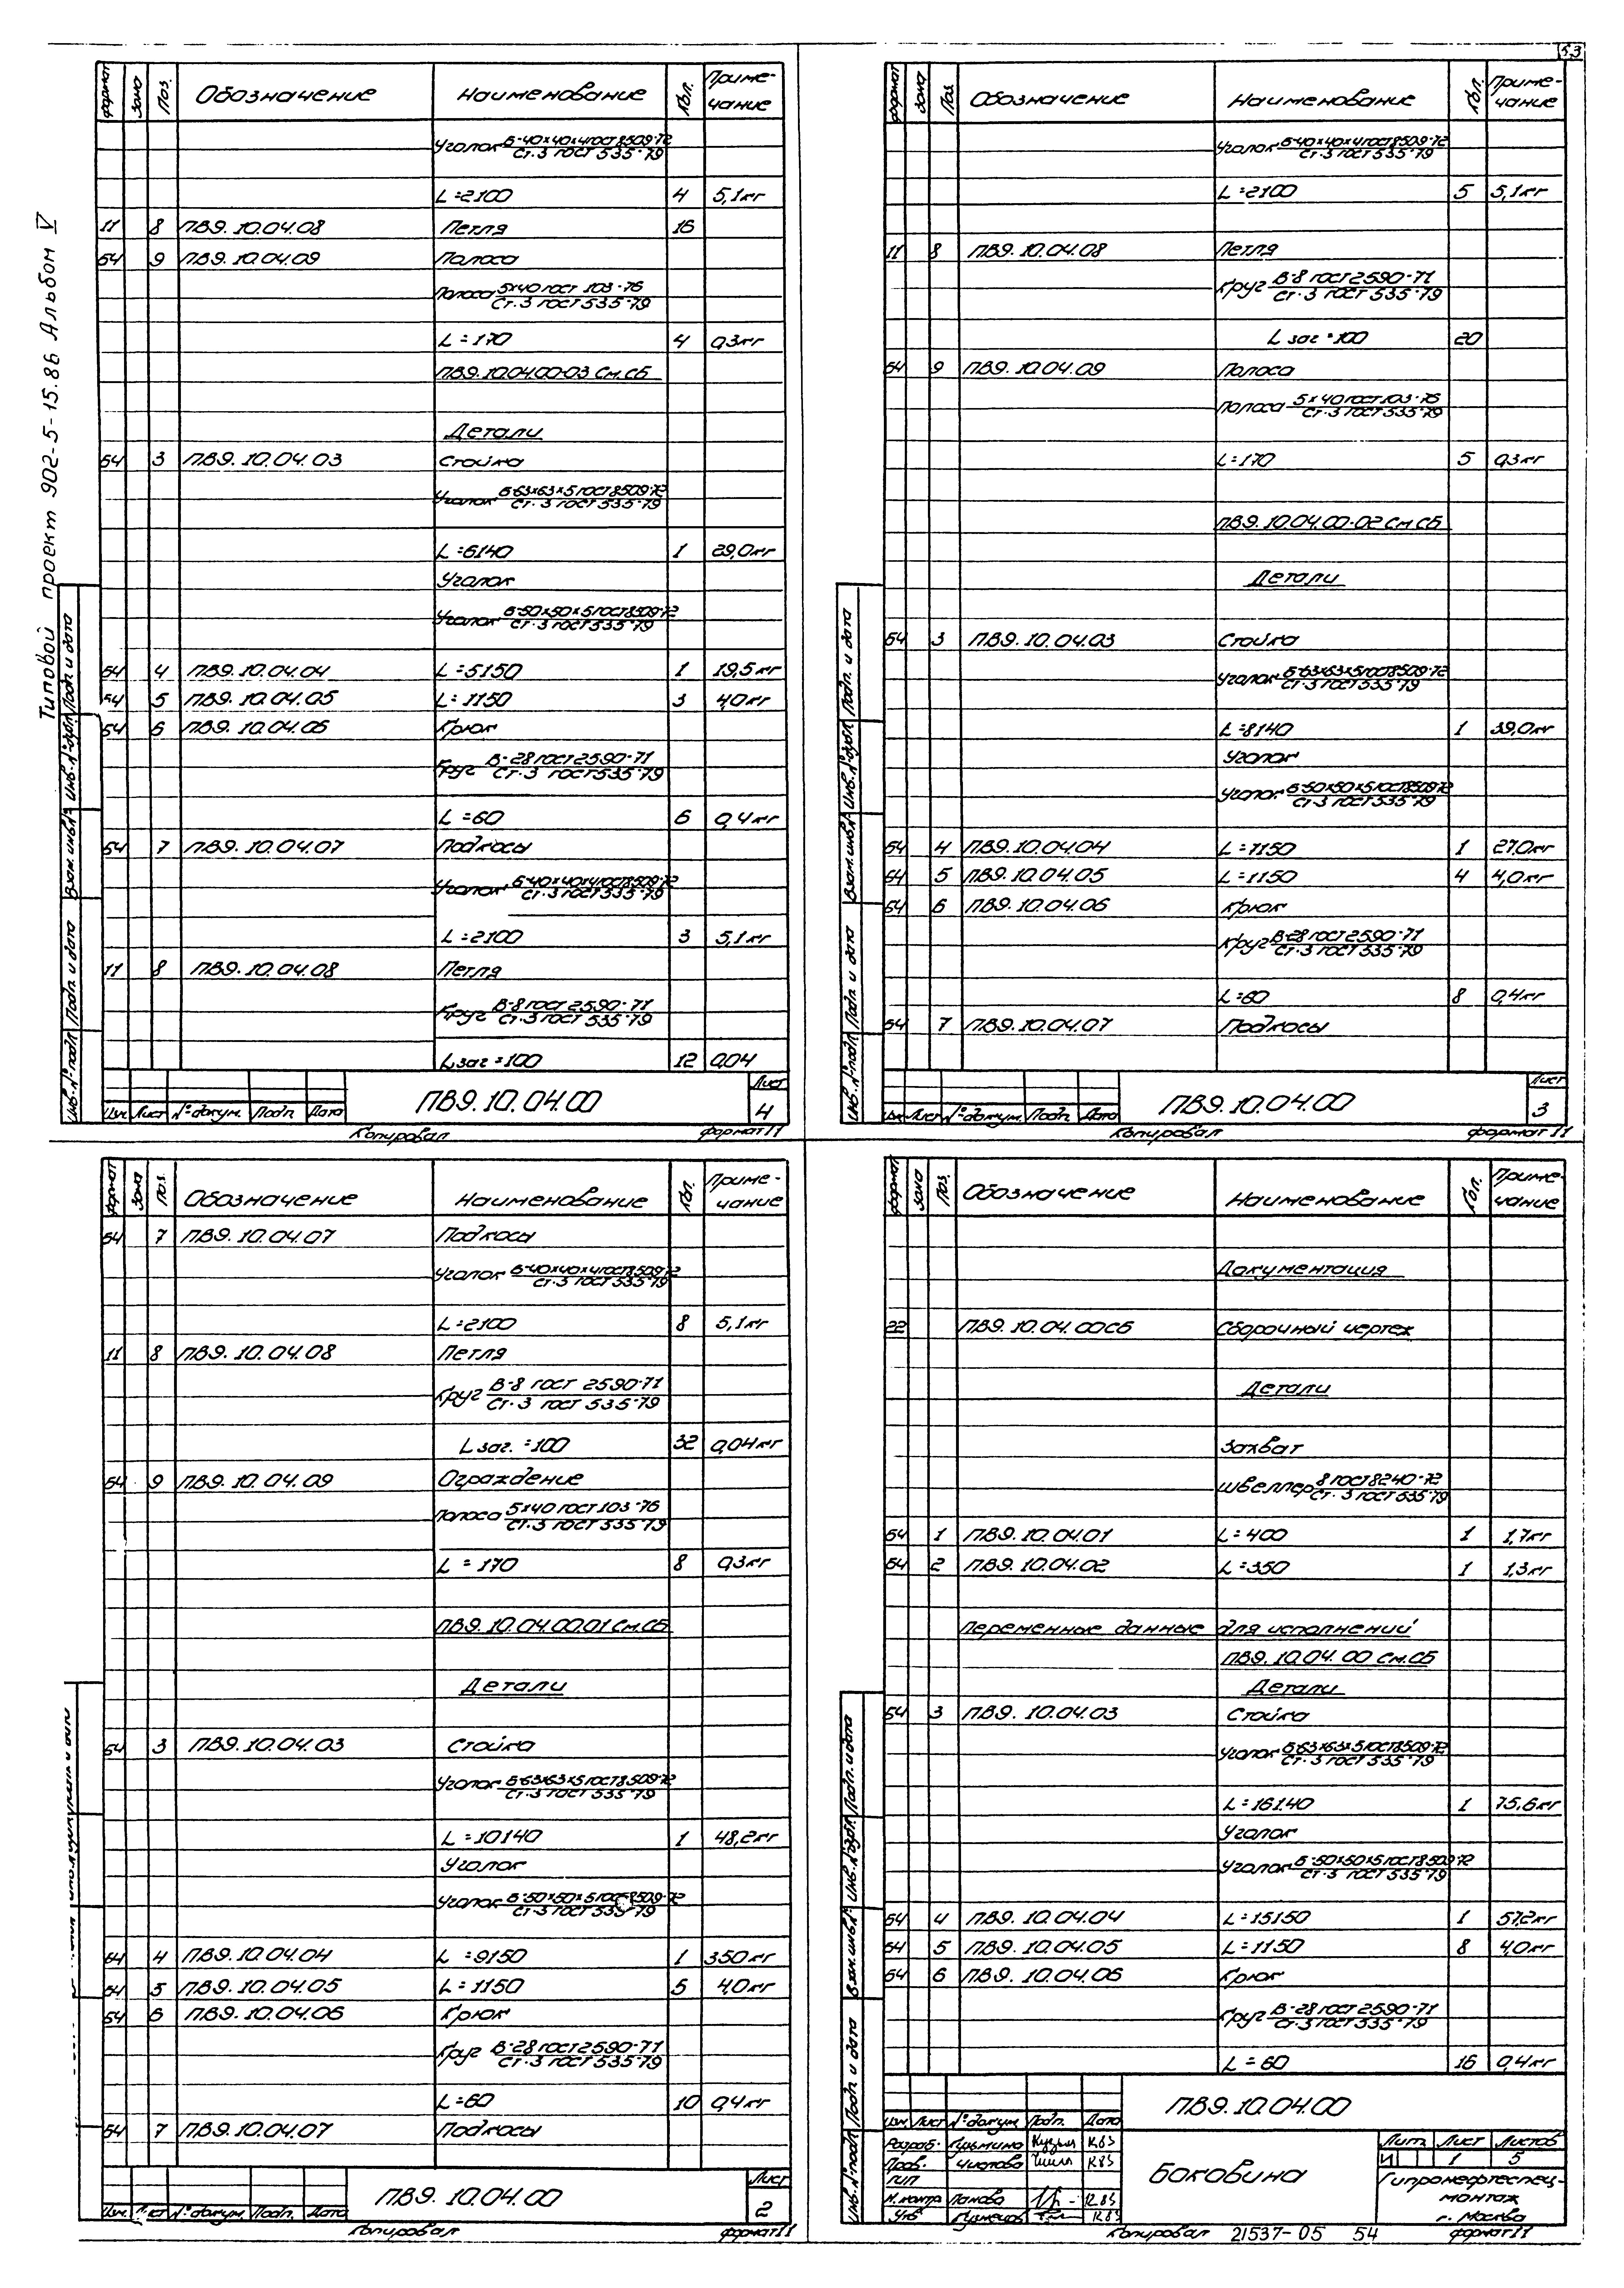 53
Типовой проект 902-5-15.86 Альбом V
формат Зона Поз. Обозначение Наименование Кол. Приме-чание
Уголок Б-40×40×4 ГОСТ 8509-72
Ст.3 ГОСТ 535-79
L=2100 4 5,1кг
11 8 ПВ9.10.04.08 Петля 16
64 9 ПВ9.10.04.09 Полоса
Полоса 5×40 ГОСТ 103-76
Ст.3 ГОСТ 535-79
L=170 4 0,3кг
ПВ9.10.04.00-03 См.СБ
Детали
64 3 ПВ9.10.04.03 Стойка
Уголок Б-63×63×5 ГОСТ 8509-72
Ст.3 ГОСТ 535-79
L=6140 1 29,0кг
Уголок
Уголок Б-50×50×5 ГОСТ 8509-72
Ст.3 ГОСТ 535-79
64 4 ПВ9.10.04.04 L=5150 1 19,5кг
64 5 ПВ9.10.04.05 L=1150 3 4,0кг
64 6 ПВ9.10.04.06 Крюк
Круг В-28 ГОСТ 2590-71
Ст.3 ГОСТ 535-79
L=60 6 0,4кг
64 7 ПВ9.10.04.07 Подкосы
Уголок Б-40×40×4 ГОСТ 8509-72
Ст.3 ГОСТ 535-79
L=2100 3 5,1кг
11 8 ПВ9.10.04.08 Петля
Круг В-8 ГОСТ 2590-71
Ст.3 ГОСТ 535-79
Lзаг=100 12 0,04
Инв.№подл Подп. и дата Взам.инв.№ Инв.№дубл Подп. и дата
Изм. Лист №докум. Подп. Дата ПВ9.10.04.00 Лист 4
Копировал формат 11
формат зона Поз. Обозначение Наименование Кол. Приме-чание
Уголок Б-40×40×4 ГОСТ 8509-72
Ст.3 ГОСТ 535-79
L=2100 5 5,1кг
11 8 ПВ9.10.04.08 Петля
Круг В-8 ГОСТ 2590-71
Ст.3 ГОСТ 535-79
L заг=100 20
64 9 ПВ9.10.04.09 Полоса
Полоса 5×40 ГОСТ 103-76
Ст.3 ГОСТ 535-79
L=170 5 0,3кг
ПВ9.10.04.00-02 См.СБ
Детали
64 3 ПВ9.10.04.03 Стойка
Уголок Б-63×63×5 ГОСТ 8509-72
Ст.3 ГОСТ 535-79
L=8140 1 39,0кг
Уголок
Уголок Б-50×50×5 ГОСТ 8509-72
Ст.3 ГОСТ 535-79
64 4 ПВ9.10.04.04 L=7150 1 27,0кг
64 5 ПВ9.10.04.05 L=1150 4 4,0кг
64 6 ПВ9.10.04.06 Крюк
Круг В-28 ГОСТ 2590-71
Ст.3 ГОСТ 535-79
L=60 8 0,4кг
64 7 ПВ9.10.04.07 Подкосы
Инв.№подл Подп. и дата Взам.инв.№ Инв.№дубл Подп. и дата
Изм Лист №докум. Подп. Дата ПВ9.10.04.00 Лист 3
Копировал формат 11
формат зона Поз. Обозначение Наименование Кол. Приме-чание
64 7 ПВ9.10.04.07 Подкосы
Уголок Б-40×40×4 ГОСТ 8509-72
Ст.3 ГОСТ 535-79
L=2100 8 5,1кг
11 8 ПВ9.10.04.08 Петля
Круг В-8 ГОСТ 2590-71
Ст.3 ГОСТ 535-79
L заг.=100 32 0,04кг
64 9 ПВ9.10.04.09 Ограждение
Полоса 5×40 ГОСТ 103-76
Ст.3 ГОСТ 535-79
L=170 8 0,3кг
ПВ9.10.04.00.01 См.СБ
Детали
64 3 ПВ9.10.04.03 Стойка
Уголок Б-63×63×5 ГОСТ 8509-72
Ст.3 ГОСТ 535-79
L=10140 1 48,2кг
Уголок
Уголок Б-50×50×5 ГОСТ 8509-72
Ст.3 ГОСТ 535-79
64 4 ПВ9.10.04.04 L=9150 1 35,0кг
64 5 ПВ9.10.04.05 L=1150 5 4,0кг
64 6 ПВ9.10.04.06 Крюк
Круг В-28 ГОСТ 2590-71
Ст.3 ГОСТ 535-79
L=60 10 0,4кг
64 7 ПВ9.10.04.07 Подкосы
Изм. Лист №докум. Подп. Дата ПВ9.10.04.00 Лист 2
Копировал формат 11
формат зона Поз. Обозначение Наименование Кол. Приме-чание
Документация
22 ПВ9.10.04.00СБ Сборочный чертеж
Детали
Захват
Швеллер 8 ГОСТ 8240-72
Ст.3 ГОСТ 535-79
64 1 ПВ9.10.04.01 L=400 1 1,7кг
64 2 ПВ9.10.04.02 L=350 1 1,3кг
Переменные данные для исполнений
ПВ9.10.04.00 См.СБ
Детали
64 3 ПВ9.10.04.03 Стойка
Уголок Б-63×63×5 ГОСТ 8509-72
Ст.3 ГОСТ 535-79
L=16140 1 75,6кг
Уголок
Уголок Б-50×50×5 ГОСТ 8509-72
Ст.3 ГОСТ 535-79
64 4 ПВ9.10.04.04 L=15150 1 57,2кг
64 5 ПВ9.10.04.05 L=1150 8 4,0кг
64 6 ПВ9.10.04.06 Крюк
Круг В-28 ГОСТ 2590-71
Ст.3 ГОСТ 535-79
L=60 16 0,4кг
Инв.№подл Подп. и дата Взам.инв.№ Инв.№дубл. Подп. и дата
ПВ9.10.04.00
Изм. Лист №докум. Подп. Дата
Разраб. Кузьмина
Пров. Чистова
ГИП
Н.контр Панова
Утв Кузнецов
Боковина
Лит. Лист Листов
И 1 5
Гипронефтеспец-
монтаж
г. Москва
Копировал 21537-05 54 формат 11